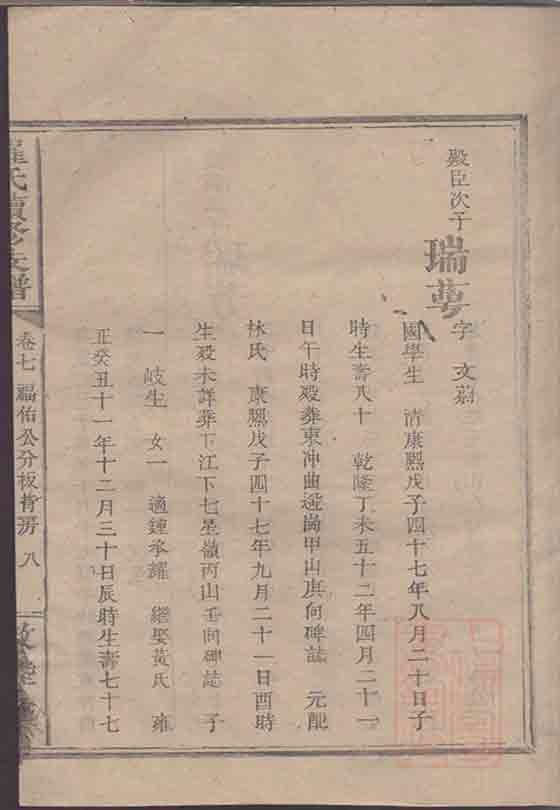 殿臣次子
瑞萼
字 文蔚
國學生 清康熙戊子四十七年八月二十日子
時生壽八十 乾隆丁未五十二年四月二十一
日午時歿葬東冲曲 崗甲山庚向碑誌 元配
林氏 康熙戊子四十七年九月二十一日酉時
生歿未詳葬下江下七星嶺丙山壬向碑誌 子
一 岐生 女一 適鍾孝耀 繼娶黃氏 雍
正癸丑十一年十二月三十日辰時生壽七十七
羅氏續修支譜
卷七 福佑公分板背房 八
敦睦